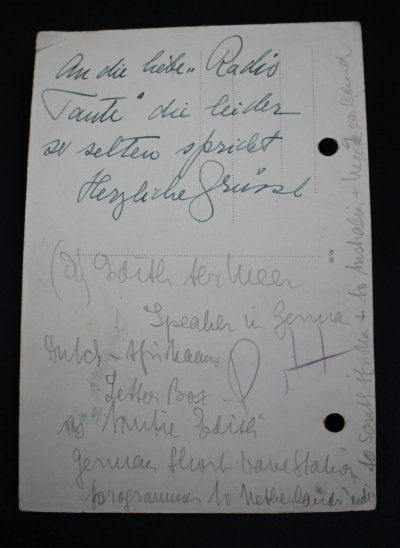 An die liebe „Radio
Tante" die leider
so selten spricht
Herzliche Grüsse
(St) Edith ter Meer
Speaker in German
Dutch - Afrikaans
Letter Box
as "Tantie Edith"
German Short wave Station
programmes to Netherlands
+ to South Africa + to Australia + New Zealand